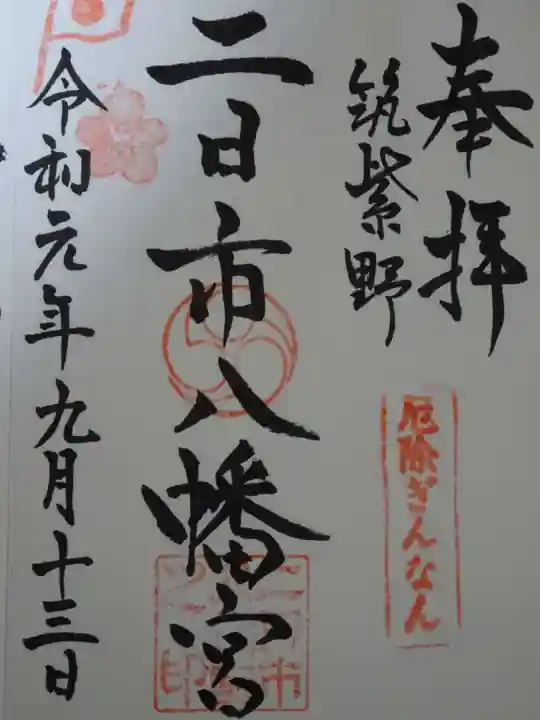 奉拝
筑紫野
厄除ぎんなん
二日市八幡宮
令和元年九月十三日